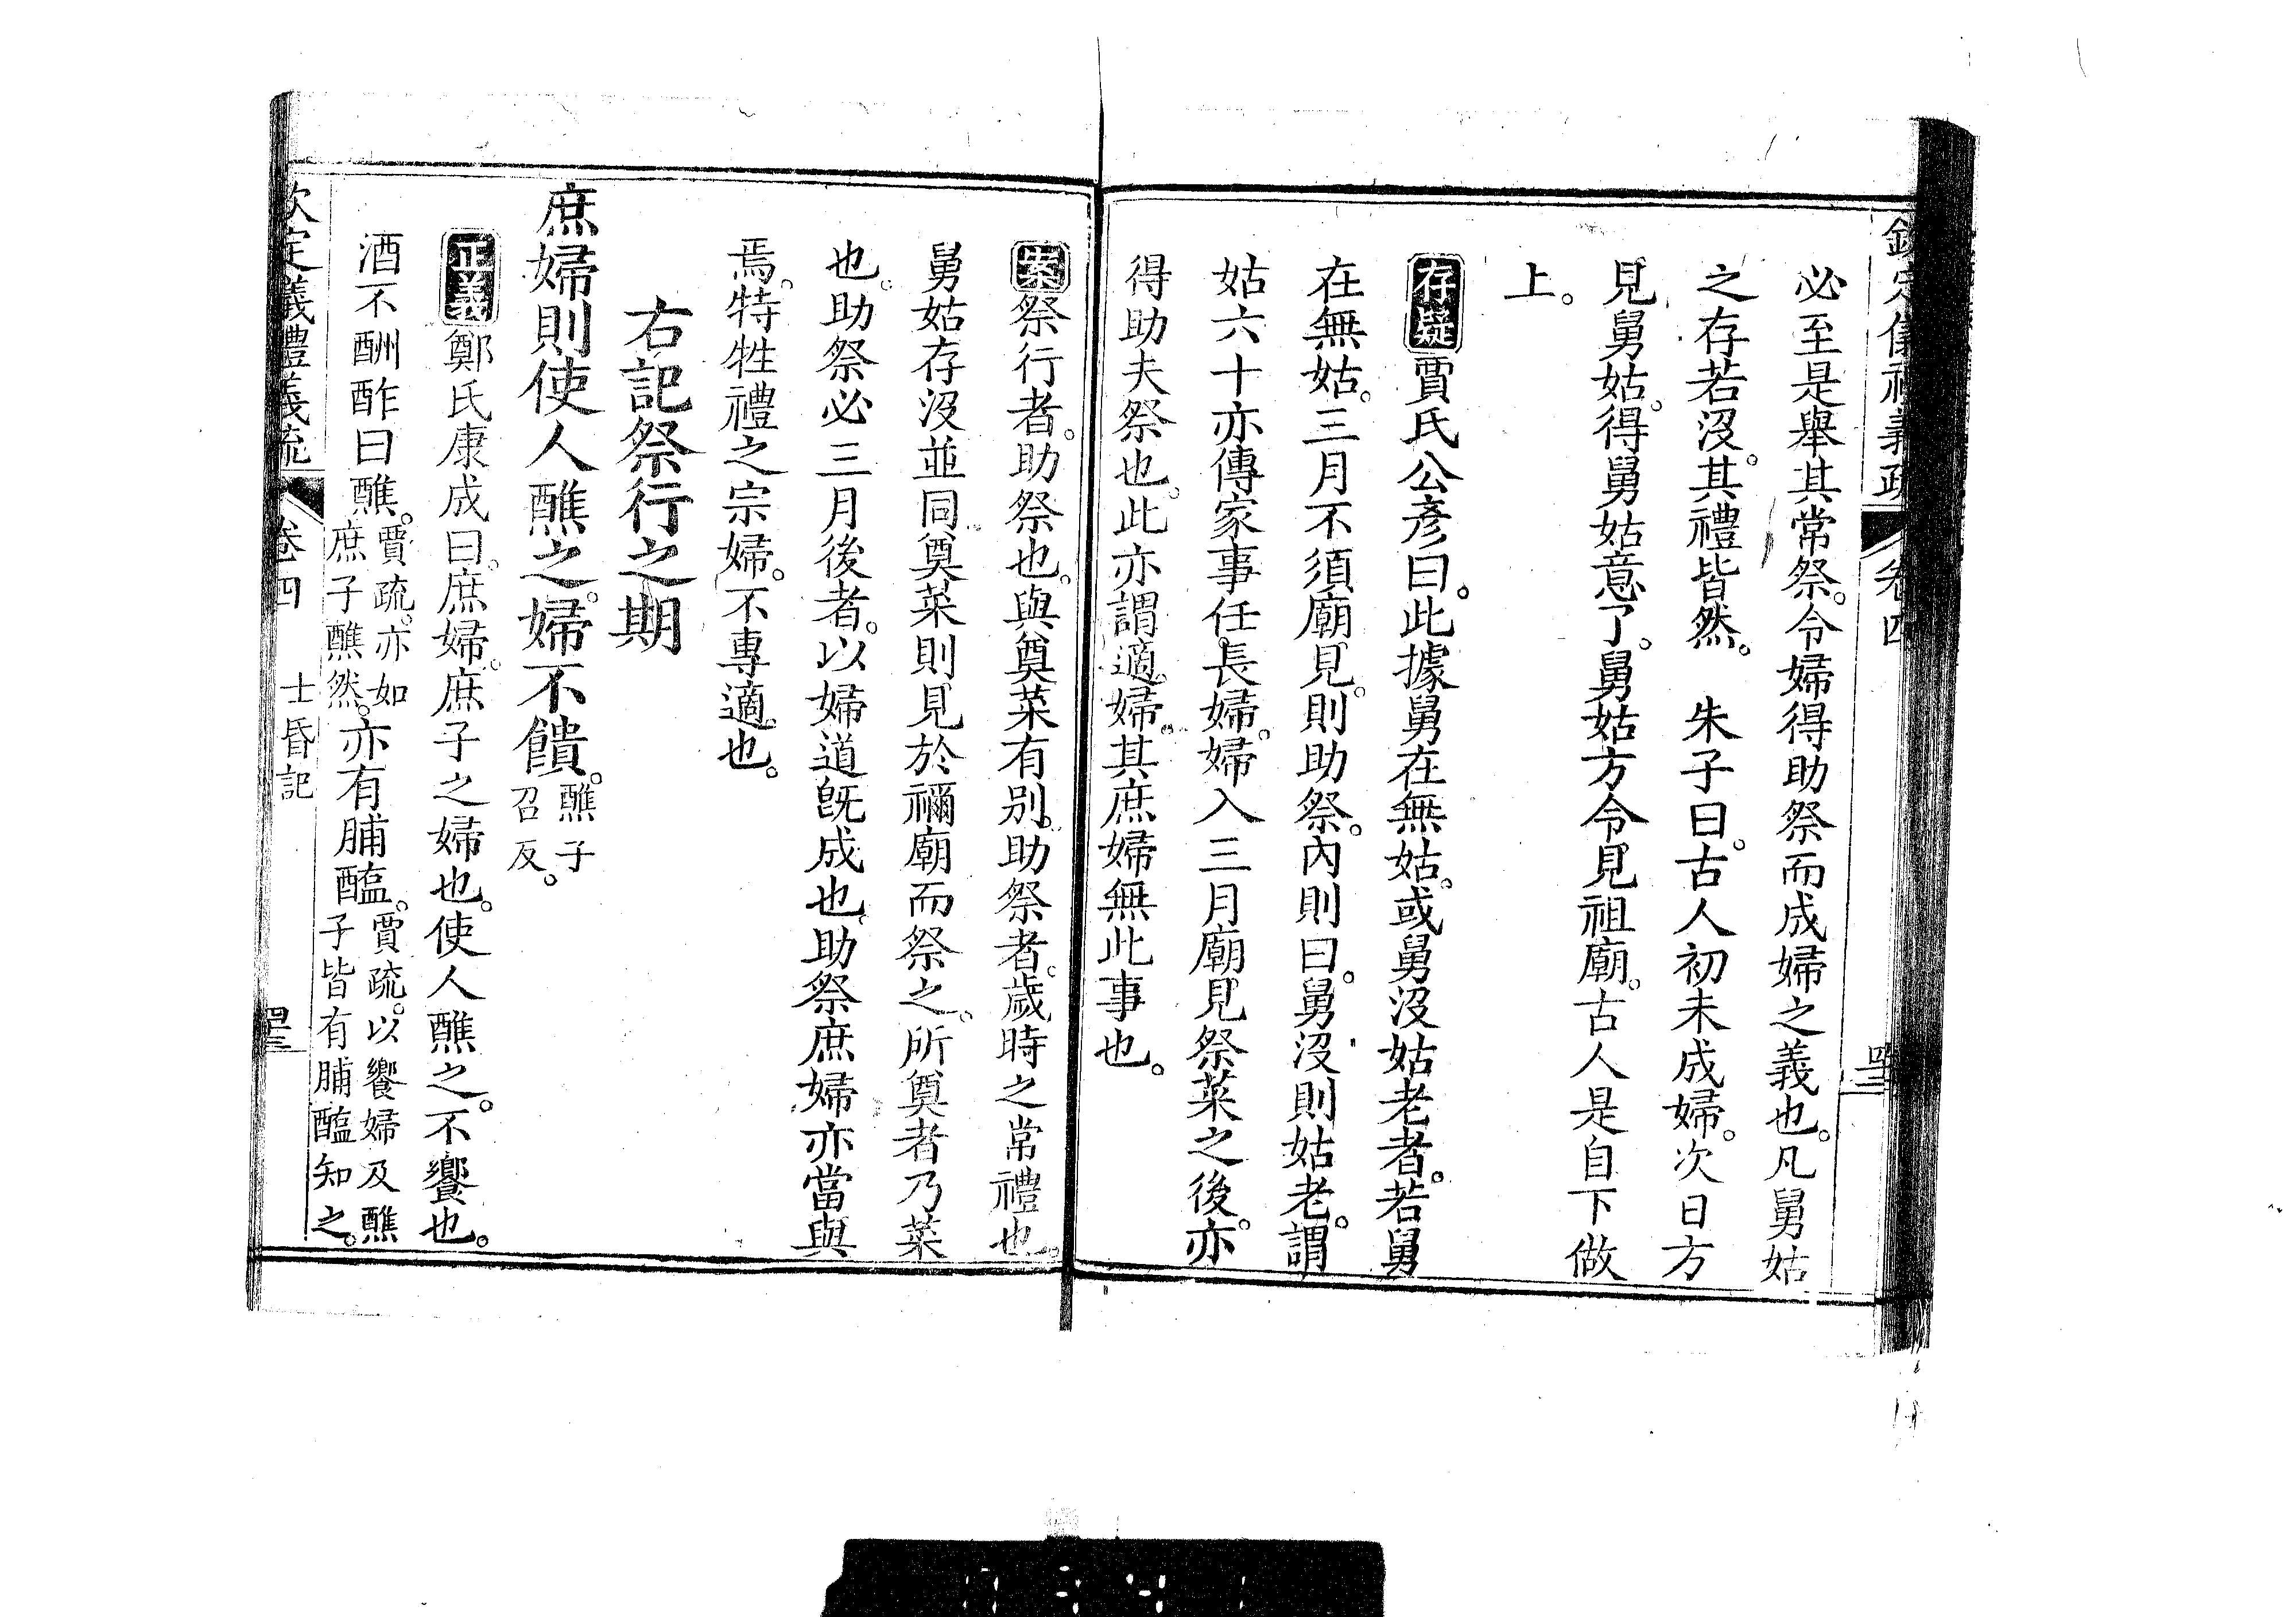 欽定儀禮義疏 卷四
必至是舉其常祭。令婦得助祭而成婦之義也。凡舅姑
之存若沒。其禮皆然。 朱子曰。古人初未成婦。次日方
見舅姑。得舅姑意了。舅姑方令見祖廟。古人是自下做
上。
存疑 賈氏公彥曰。此據舅在無姑。或舅沒姑老者。若舅
在無姑。三月不須廟見。則助祭。內則曰。舅沒則姑老。謂
姑六十亦傳家事任長婦。婦入三月廟見祭菜之後。亦
得助夫祭也。此亦謂適婦。其庶婦無此事也。
案 祭行者。助祭也。與奠菜有別。助祭者。歲時之常禮也。
舅姑存沒並同。奠菜則見於禰廟而祭之。所奠者乃菜
也。助祭必三月後者。以婦道既成也。助祭庶婦亦當與
焉。特牲禮之宗婦。不專適也。
右記祭行之期
庶婦則使人醮之。婦不饋。醮子召反。
正義 鄭氏康成曰。庶婦。庶子之婦也。使人醮之。不饗也。
酒不酬酢曰醮。賈疏。亦如庶子醮然。亦有脯醢。賈疏。以饗婦及醮子皆有脯醢知之。
欽定儀禮義疏 卷四 士昏記